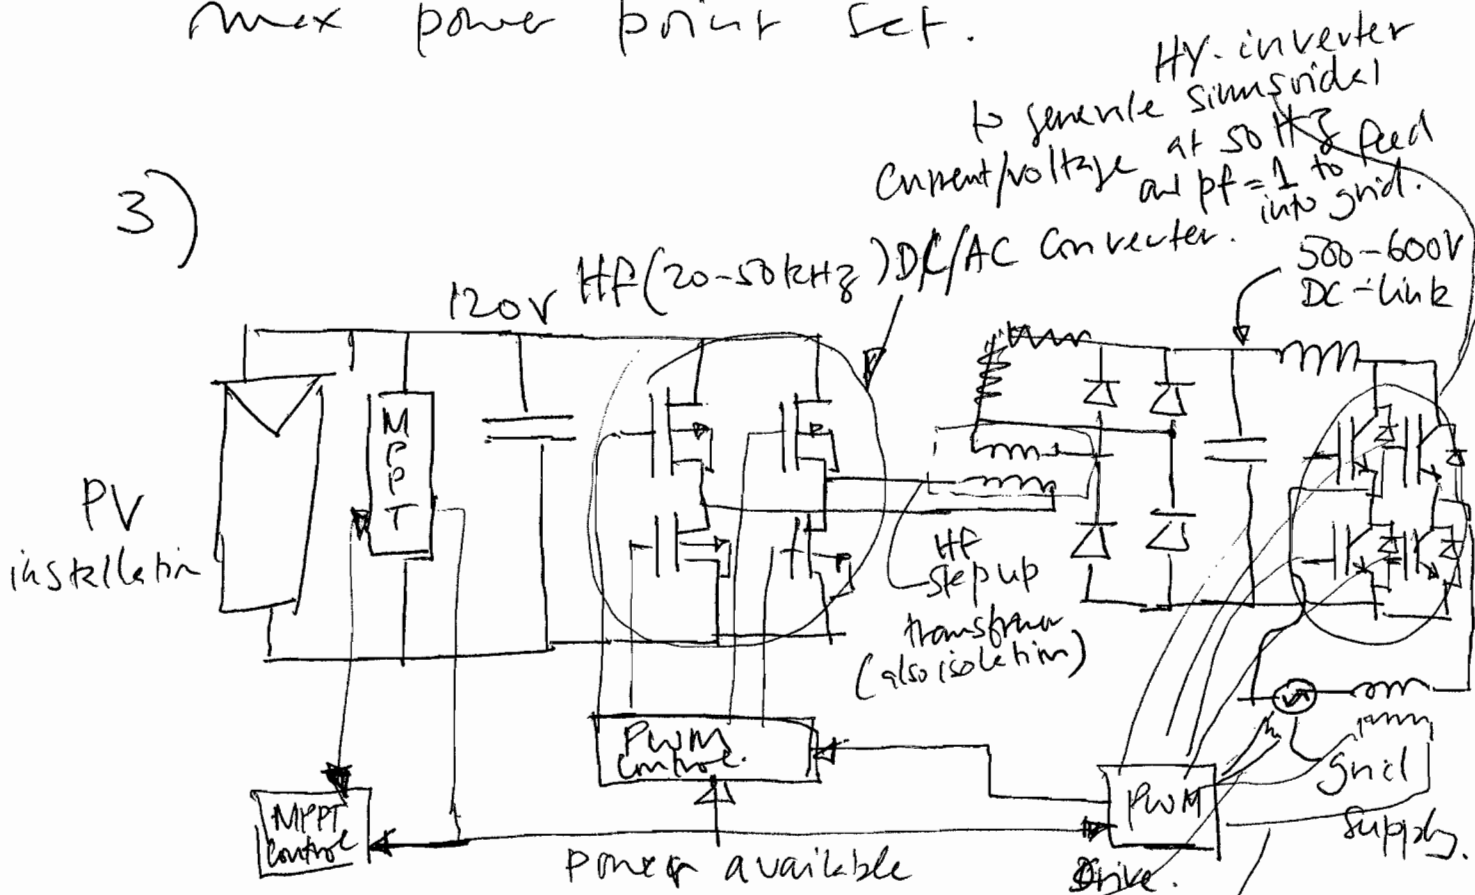 max power point set.
HV-inverter
to generate sinusoidal
current/voltage at 50 Hz
and pf=1 to feed
into grid.
3)
120V
HF(20-50kHz) DC/AC Converter.
500-600V
DC-link
M
P
P
T
PV
installation
HF
step up
transformer
(also isolation)
PWM
control.
MPPT
control
PWM
Drive.
power available
grid
supply.